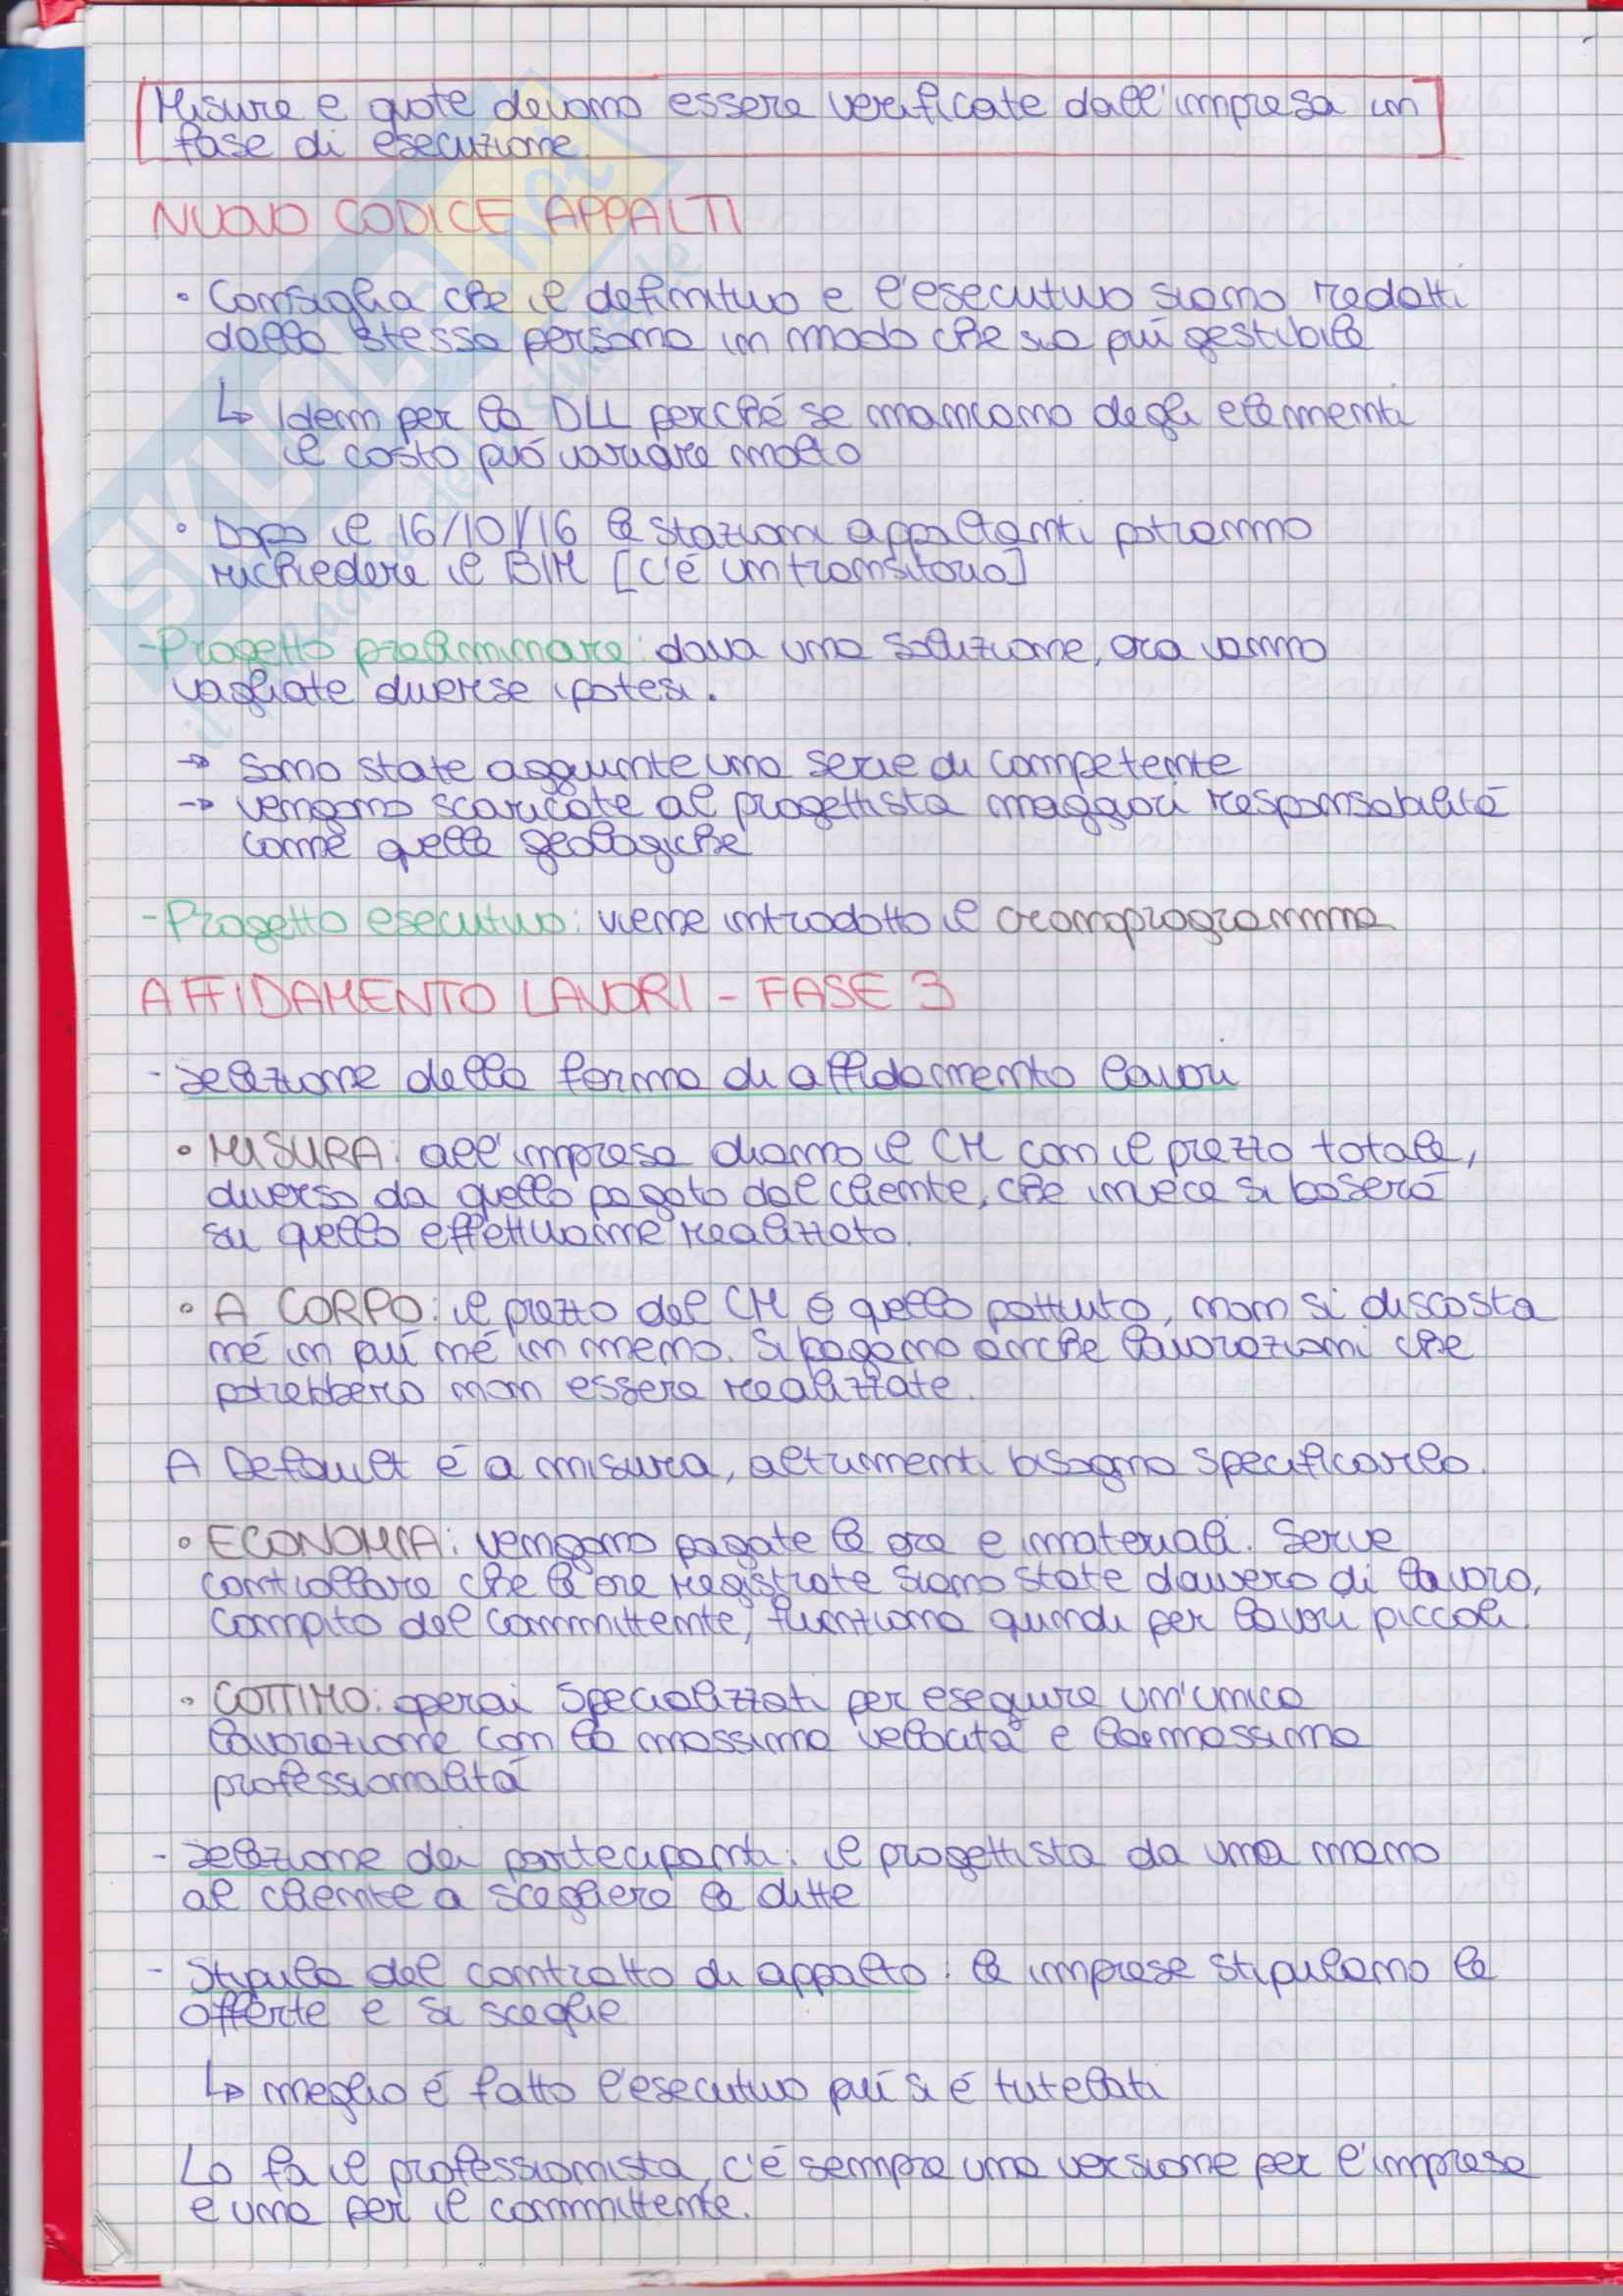 Misure e quote devono essere verificate dall'impresa in
fase di esecuzione.
NUOVO CODICE APPALTI
• Consiglia che il definitivo e l'esecutivo siano redatti
dalla stessa persona in modo che sia piú gestibile
↳ Idem per la DLL perché se mancano degli elementi
il costo puó variare molto
• Dopo il 16/10/16 le stazioni appaltanti potranno
richiedere il BIM [c'é un transitorio]
- Progetto preliminare: dava una soluzione, ora vanno
vagliate diverse ipotesi.
→ Sono state aggiunte una serie di competente
→ vengono scaricate al progettista maggiori responsabilitá
come quelle geologiche
- Progetto esecutivo: viene introdotto il cronoprogramma
AFFIDAMENTO LAVORI - FASE 3
- Selezione della forma di affidamento lavori
• MISURA: all'impresa diamo il CM con il prezzo totale,
diverso da quello pagato dal cliente, che invece si baserá
su quello effettivame realizzato.
• A CORPO: il prezzo del CM é quello pattuito, non si discosta
né in piú né in meno. Si pagano anche lavorazioni che
potrebbero non essere realizzate.
A Default é a misura, altrimenti bisogna specificarlo.
• ECONOMIA: vengono pagate le ore e i materiali. Serve
controllare che le ore registrate siano state davvero di lavoro,
compito del committente, funziona quindi per lavori piccoli.
• COTTIMO: operai specializzati per eseguire un'unica
lavorazione con la massima velocitá e la massima
professionalitá
- Selezione dei partecipanti: il progettista da una mano
al cliente a scegliere le ditte
- Stipula del contratto di appalto: le imprese stipulano le
offerte e si sceglie
↳ meglio é fatto l'esecutivo piú si é tutelati
Lo fa il professionista, c'é sempre una versione per l'impresa
e una per il committente.